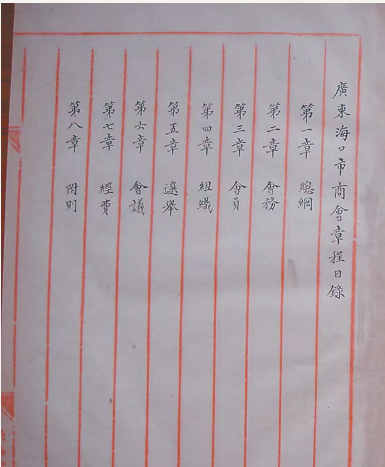 廣東海口市商會章程目錄
第一章 總綱
第二章 會務
第三章 會員
第四章 組織
第五章 選舉
第六章 會議
第七章 經費
第八章 附則